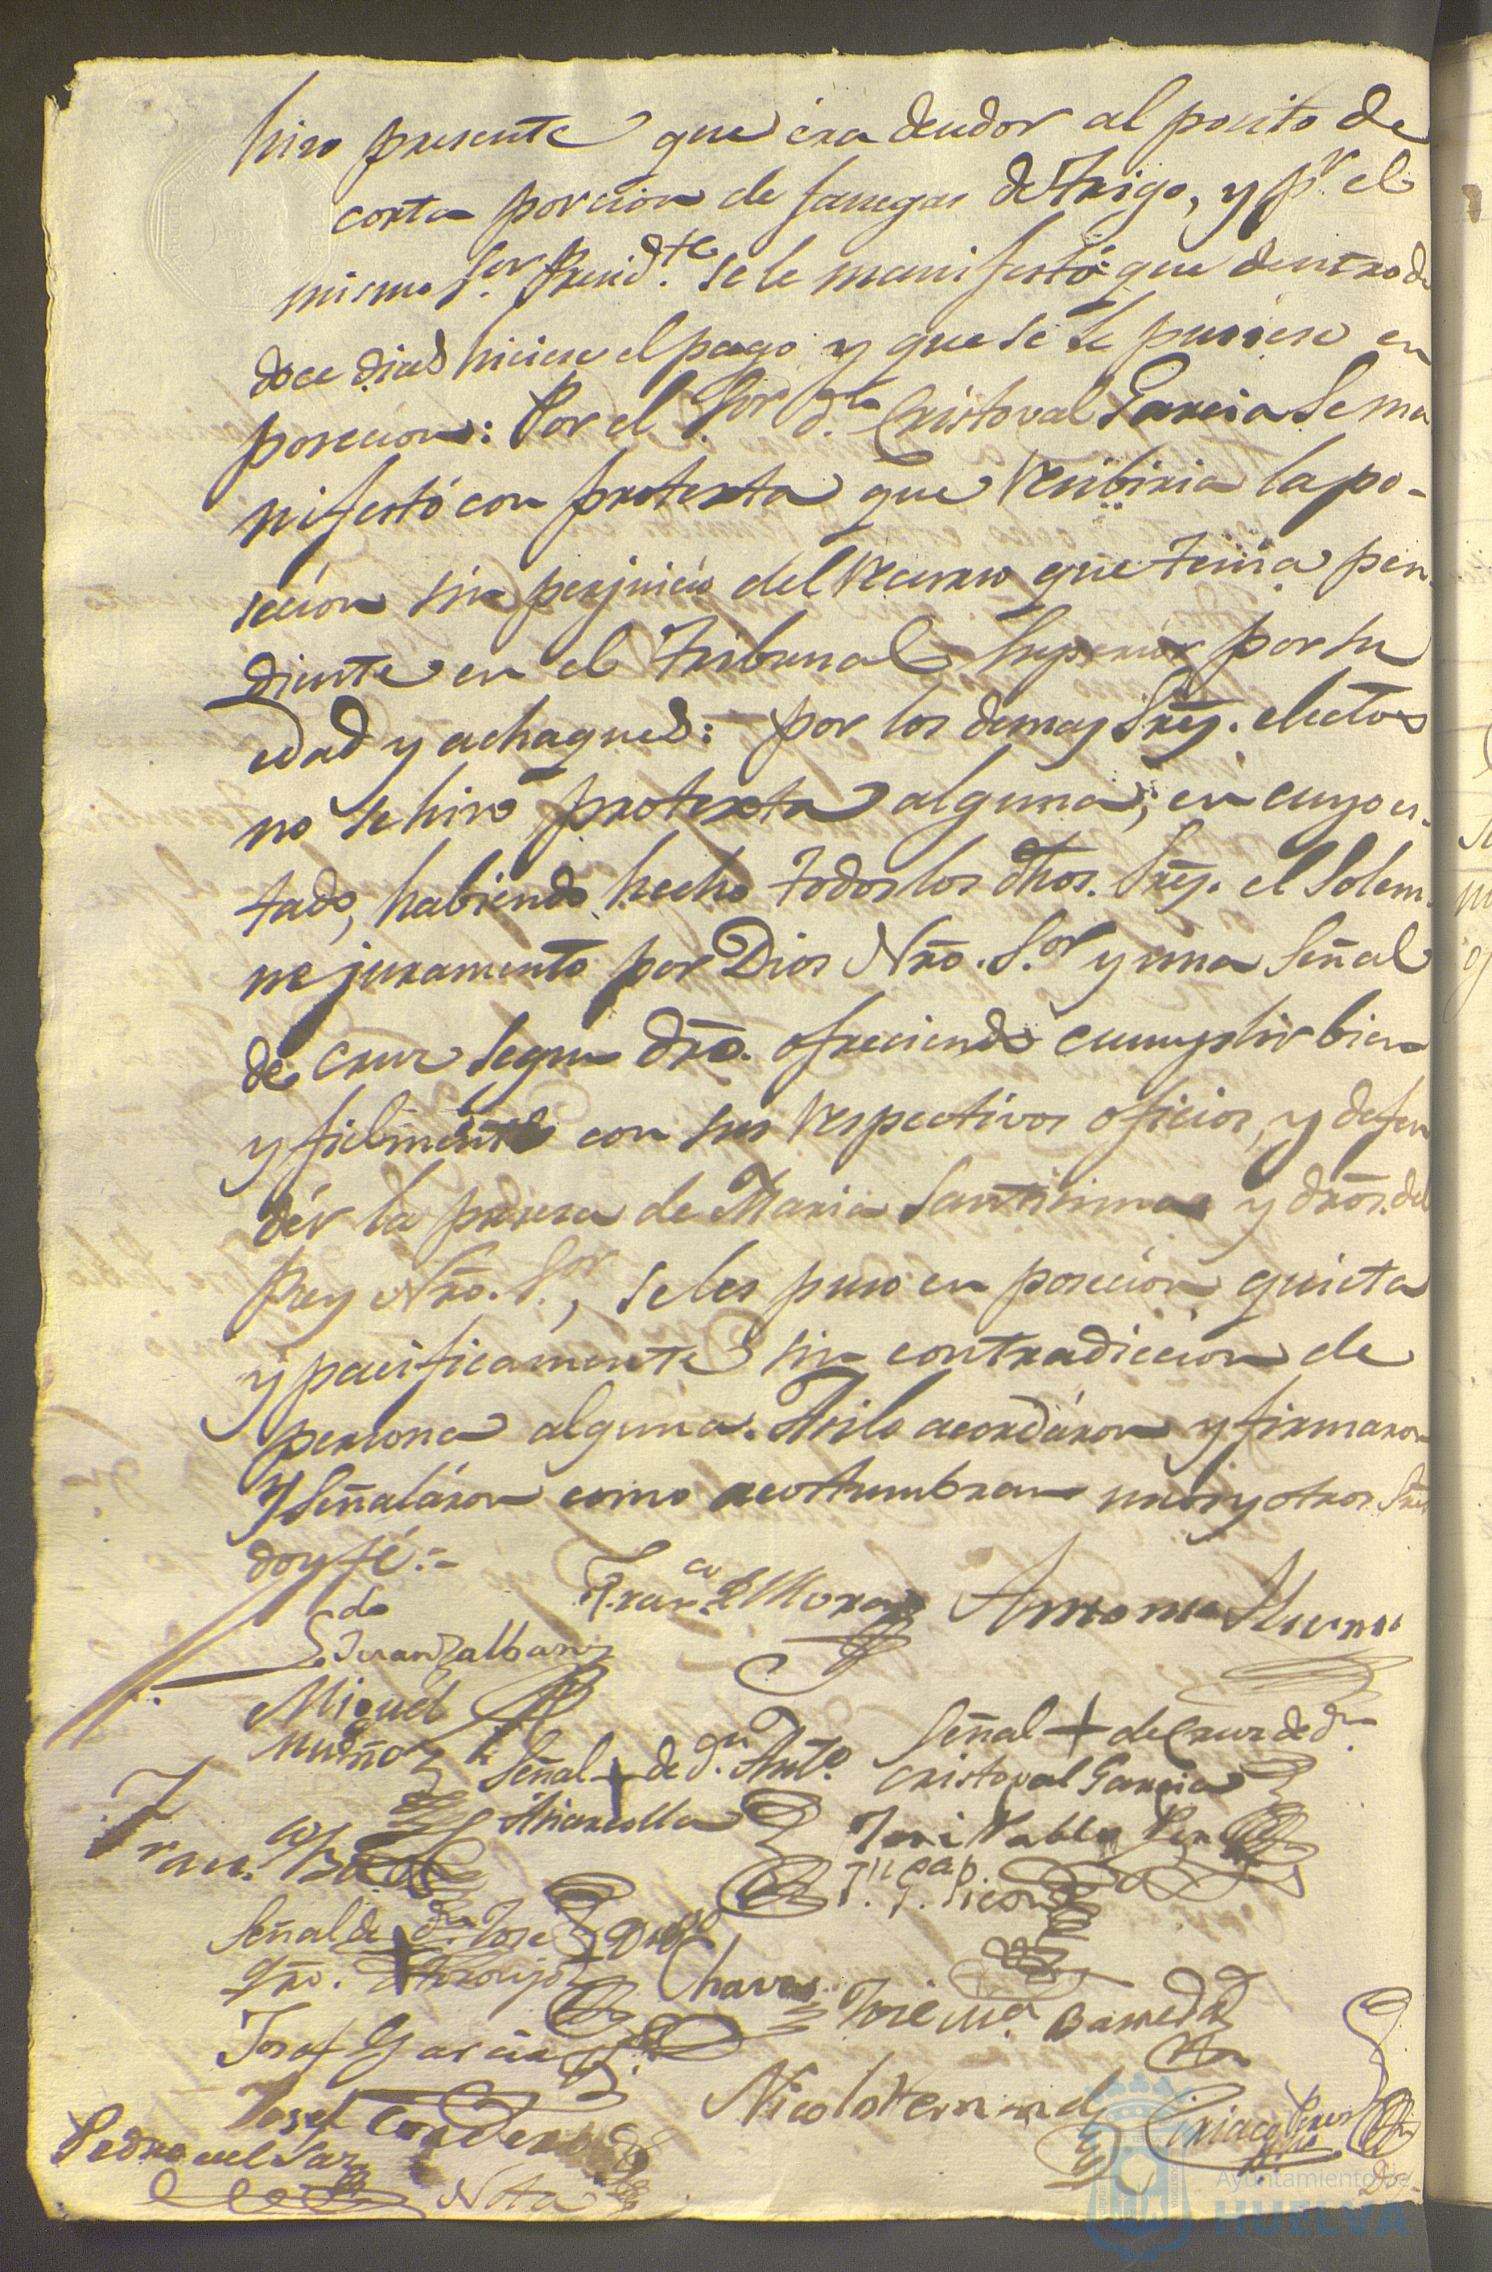 hizo presente que éra deudor al posito de
corta porcion de fanegas de Trigo, y pr. el
mismo Sor. Presidte. se le manifestó que dentro de
doce dias hiciese el pago y que se le pusiese en
posecion: Por el Sor. dn. Cristoval Garcia se ma
nifestó con protexta que recibiria la po-
secion sin perjuicio del recurso que tenia pen
diente en el Tribunal Superior por su
edad y achaques: por los demas Sres. electos
no se hizo protexta alguna; en cuyo es-
tado, habiendo hecho todos los dhos. Sres. el Solem-
ne juramento por Dios Nro. Sor. y una Señal
de cruz segun dro. ofreciendo cumplir bien
y fielmente con sus respectivos oficios, y defen
der la pureza de Maria Santisima y dros. del
Rey Nro. Sor., se les puso en posecion quieta
y pacificamente sin contradiccion de
persona alguna. Asi lo acordáron y firmaron
y Señaláron como acostumbran unos y otros Sres
doy fé:-
Franco. de Mora Antonio
Ldo.
Miguel
Muñoz
Señal + de dn. Anto.
Señal + de Cruz de dn.
Cristoval Garcia
José Pablo Perez
Franco.
Señal de dn. Jose
Diego
Chaves
José Ma. Barreda
Josef Garcia
Josef Cordero
Nicolas Hernandez
Ciriaco Perez
Pedro del Saz
Nota
Ayuntamiento de
HUELVA